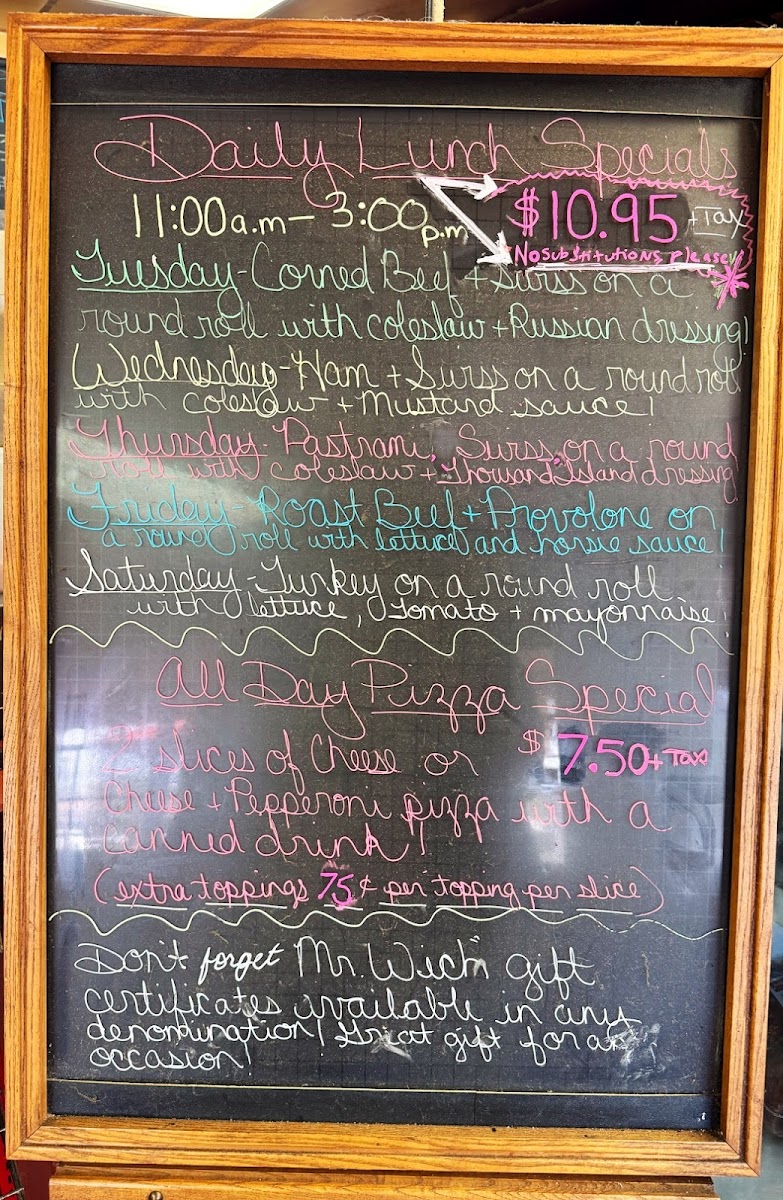 Daily Lunch Specials
11:00 a.m - 3:00 p.m
$10.95 + Tax
No substitutions, please!
Tuesday - Corned Beef + Swiss on a
round roll with coleslaw + Russian dressing!
Wednesday - Ham + Swiss on a round roll
with coleslaw + Mustard sauce!
Thursday - Pastrami, Swiss on a round
roll with coleslaw + Thousand Island dressing!
Friday - Roast Beef + Provolone on
a round roll with lettuce and horsie sauce!
Saturday - Turkey on a round roll
with lettuce, tomato + mayonnaise!
All Day Pizza Special
2 slices of Cheese or
$7.50 + Tax
Cheese + Pepperoni pizza with a
canned drink!
(extra toppings 75¢ per topping per slice)
Don't forget Mr. Wich" gift
certificates available in any
denomination! Great gift for any
occasion!